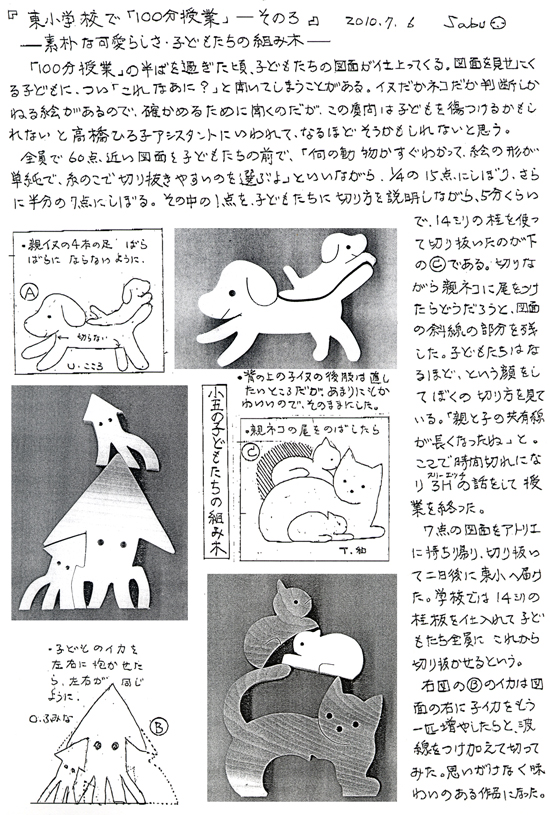 『東小学校で「100分授業」―その3』 2010.7.6 Sabu
―素朴な可愛らしさ・子どもたちの組み木―
「100分授業」の半ばを過ぎた頃、子どもたちの図面が仕上ってくる。図面を見せにく
る子どもに、つい「これなあに?」と聞いてしまうことがある。イヌだかネコだか判断しか
ねる絵があるので、確かめるために聞くのだが、この質問は子どもを傷つけるかもし
れないと高橋ひろ子アシスタントにいわれて、なるほどそうかもしれないと思う。
全員で60点近い図面を子どもたちの前で、「何の動物かすぐわかって、絵の形が
単純で、糸のこで切り抜きやすいのを選ぶよ」といいながら、1/4の15点にしぼり、さら
に半分の7点にしぼる。その中の1点を、子どもたちに切り方を説明しながら、5分くらい
で、14ミリの桂を使っ
て切り抜いたのが下
のⒸである。切りな
がら親ネコに尾をつけ
たらどうだろうと、図面
の斜線の部分を残
した。子どもたちはな
るほど、という顔をし
てぼくの切り方を見て
いる。「親と子の共有線
が長くなったね」と。
ここで時間切れにな
り3Hの話をして授
スリーエッチ
業を終った。
7点の図面をアトリエ
に持ち帰り、切り抜い
て二日後に東小へ届け
た。学校では14ミリの
桂板を仕入れて子ど
もたち全員に これから
切り抜かせるという。
右図のⒷのイカは図
面の右に子イカをもう
一匹増やしたらと、波
線をつけ加えて切って
みた。思いがけなく味
わいのある作品になった。
・親イヌの4本の足 ばら
ばらに ならないように。
Ⓐ
切らない
U・こころ
・背の上の子イヌの後肢は直し
たいところだが、あまりにもか
わいいので、そのままにした。
小五の子どもたちの組み木
・親ネコの尾をのばしたら
Ⓒ
T.紬
・子どものイカを
左右に抱かせた
ら、左右が同じ
ように。
O.ふみな
Ⓑ